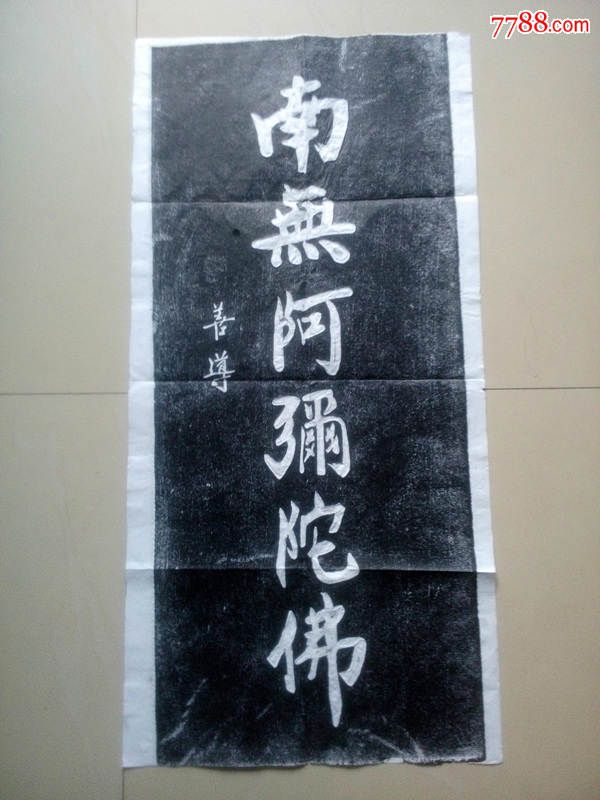 7788.com
南無阿彌陀佛
善導